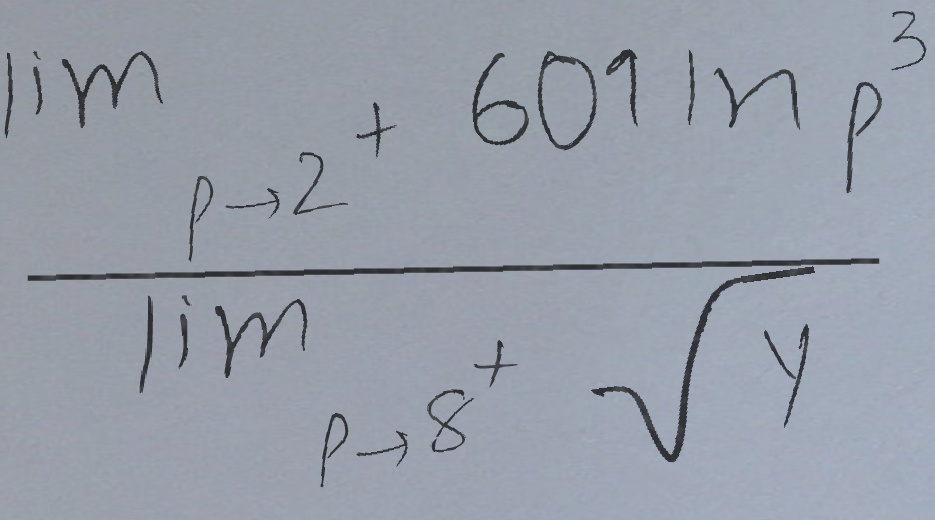 lim p→2⁺ 609 ln p³
lim p→8⁺ √y